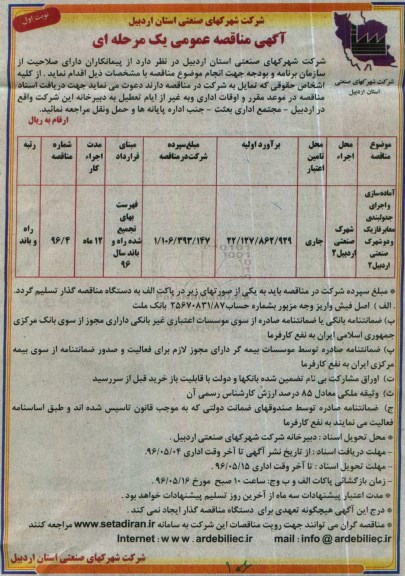 شرکت شهرکهای صنعتی استان اردبیل
نوبت اول
آگهی مناقصه عمومی یک مرحله ای
شرکت شهرکهای صنعتی
استان اردبیل
شرکت شهرکهای صنعتی استان اردبیل در نظر دارد از پیمانکاران دارای صلاحیت از
سازمان برنامه و بودجه جهت انجام موضوع مناقصه با مشخصات ذیل اقدام نماید . از کلیه
اشخاص حقوقی که تمایل به شرکت در مناقصه دارند دعوت می نماید جهت دریافت اسناد
مناقصه در موعد مقرر و اوقات اداری وبه غیر از ایام تعطیل به دبیرخانه این شرکت واقع
در اردبیل - مجتمع اداری بعثت - جنب اداره پایانه ها و حمل ونقل مراجعه نمائید.
ارقام به ریال
موضوع مناقصه | محل اجراء | محل تامین اعتبار | برآورد اولیه | مبلغ سپرده شرکت در مناقصه | مبنای قرارداد | مدت اجراء کار | شماره مناقصه | رتبه
آماده سازی واجرای جدولبندی معابر فاز یک ودو شهرک صنعتی اردبیل۲ | شهرک صنعتی اردبیل۲ | جاری | ۲۲/۱۲۷/۸۶۲/۹۲۹ | ۱/۱۰۶/۳۹۳/۱۴۷ | فهرست بهای تجمیع شده راه و باند سال ۹۶ | ۱۲ ماه | ۹۶/۴ | راه و باند
* مبلغ سپرده شرکت در مناقصه باید به یکی از صورتهای زیر در پاکت الف به دستگاه مناقصه گذار تسلیم گردد.
. الف ) اصل فیش واریز وجه مزبور بشماره حساب۲۵۶۷۰۸۳۱/۸۷ بانک ملت
ب) ضمانتنامه بانکی یا ضمانتنامه صادره از سوی موسسات اعتباری غیر بانکی دارای مجوز از سوی بانک مرکزی
جمهوری اسلامی ایران به نفع کارفرما
پ) ضمانتنامه صادره توسط موسسات بیمه گر دارای مجوز لازم برای فعالیت و صدور ضمانتنامه از سوی بیمه
مرکزی ایران به نفع کارفرما
ت) اوراق مشارکت بی نام تضمین شده بانکها و دولت با قابلیت باز خرید قبل از سررسید
ث) وثیقه ملکی معادل ۸۵ درصد ارزش کارشناس رسمی آن
ج) ضمانتنامه صادره توسط صندوقهای ضمانت دولتی که به موجب قانون تاسیس شده اند و طبق اساسنامه
فعالیت می نمایند به نفع کارفرما
* محل تحویل اسناد : دبیرخانه شرکت شهرکهای صنعتی اردبیل .
- مهلت دریافت اسناد : از تاریخ نشر آگهی تا آخر وقت اداری ۹۶/۰۵/۰۴.
- مهلت تحویل اسناد : تا آخر وقت اداری ۹۶/۰۵/۱۵
- زمان بازگشائی پاکات الف و ب و ج: ساعت ۱۰ صبح مورخ ۹۶/۰۵/۱۶
* مدت اعتبار پیشنهادات سه ماه از آخرین روز تسلیم پیشنهادات خواهد بود .
* درج این آگهی هیچگونه تعهدی برای دستگاه مناقصه گذار ایجاد نمی کند .
* مناقصه گران می توانند جهت رویت مناقصات این شرکت به سامانه www.setadiran.ir مراجعه کنند
Internet : w w w . ardebiliec.ir mail : info @ ardebiliec.ir
شرکت شهرکهای صنعتی استان اردبیل